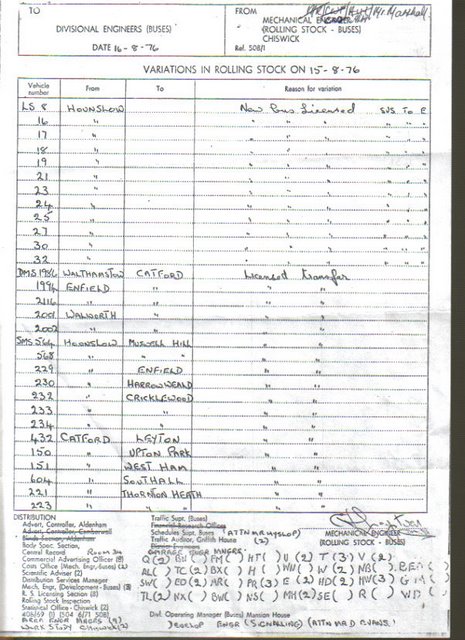 TO
DIVISIONAL ENGINEERS (BUSES)
DATE 16-8-76
FROM Mr Marshall
MECHANICAL ENGINEER
(ROLLING STOCK - BUSES)
CHISWICK
Ref. 508/1
VARIATIONS IN ROLLING STOCK ON 15-8-76
Vehicle number From To Reason for variation
LS 8 HOUNSLOW New Bus Licensed SUS TO E
16 " " " " " " "
17 " " " " " " "
18 " " " " " " "
19 " " " " " " "
21 " " " " " " "
23 " " " " " " "
24 " " " " " " "
25 " " " " " " "
27 " " " " " " "
30 " " " " " " "
32 " " " " " " "
DMS 1986 WALTHAMSTOW CATFORD Licensed transfer
1994 ENFIELD " " "
2116 " " " "
2001 WALWORTH " " "
2002 " " " "
SMS 564 HOUNSLOW MUSWELL HILL " "
568 " " " " "
229 " ENFIELD " "
230 " HARROW WEALD " "
232 " CRICKLEWOOD " "
233 " " " "
234 " " " "
432 CATFORD LEYTON " "
150 " UPTON PARK " "
151 " WEST HAM " "
604 " SOUTHALL " "
221 " THORNTON HEATH " "
223 " " " " "
DISTRIBUTION
Advert. Controller, Aldenham
Advert. Controller, Camberwell
Body Spec. Section,
Central Record Room
Commercial Advertising Officer (8)
Costs Office (Mech. Engr.-Buses) (2)
Scientific Adviser (2)
Distribution Services Manager
Mech. Engr. (Development - Buses) (3)
R. S. Licensing Section (8)
Rolling Stock Inspection
Statistical Office - Chiswick (2)
408/69 (1) 504 6/71 508)
AREA ENGR MNGRS (9)
WORK STUDY CHISWICK (2)
Traffic Supt. (Buses)
Financial Research Officer
Schedules Supt. Buses (ATTN MR HYSLOP)
Traffic Auditor, Griffith House (2)
GARAGE ENGR MNGRS:
MECHANICAL ENGINEER
(ROLLING STOCK - BUSES)
Q(2) BH( ) FM( ) HT( ) U(2) T(3) V(2)
AL( ) TC(2) BX( ) H( ) WN( ) W(2) NB( ).
SW( ) ED(2) AR( ) PR(3) E(2) HD(2) HW(3) GM(
TL(2) NX( ) BW( ) NS( ) MH(2) SE( ) R( ) WD(
Divl. Operating Manager (Buses) Mansion House
DEVELOP ENGR (SIGNALLING) (ATTN MR D EVANS.)